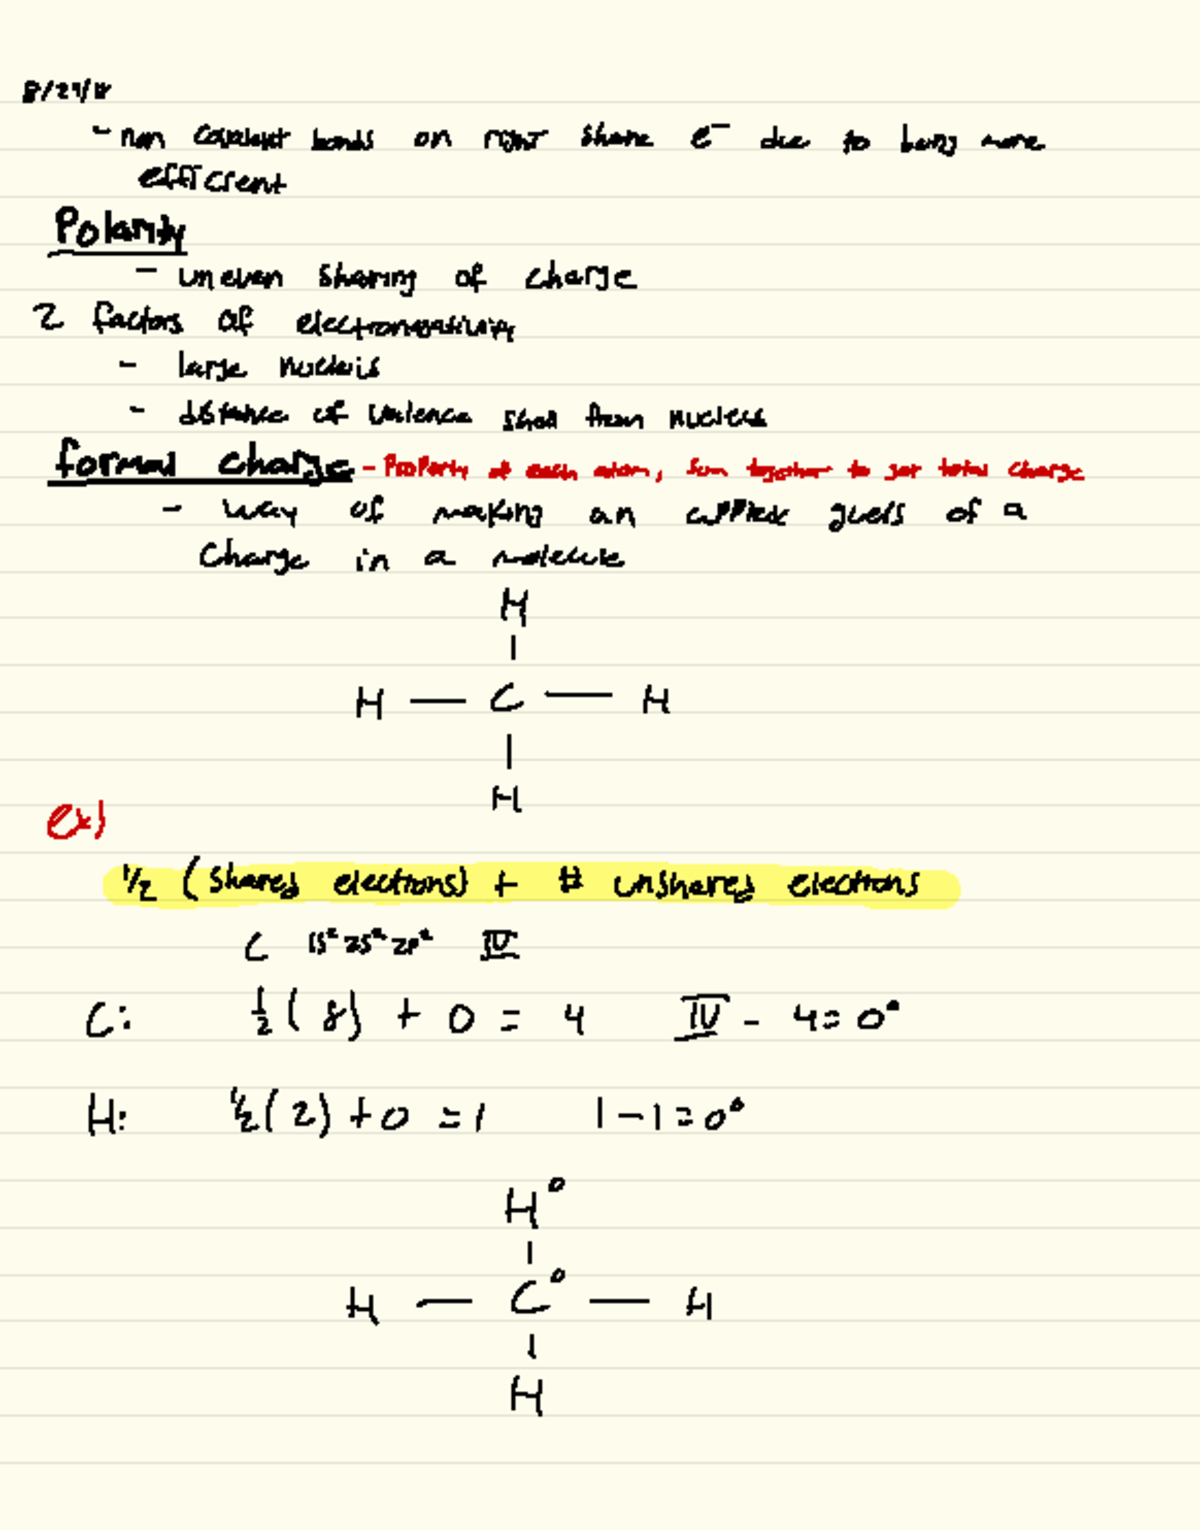 8/29/18
- non covalent bonds on right share e⁻ due to being more
efficient
Polarity
- uneven sharing of charge
2 factors of electronegativity
- large nucleis
- distance of valence shell from nucleus
formal charge - Property of each atom, sum together to get total charge
- way of making an guess of a
charge in a molecule
H
|
H — C — H
|
H
ex)
1/2 (shared electrons) + # unshared electrons
C 1s² 2s² 2p² IV
C: 1/2 (8) + 0 = 4 IV - 4 = 0°
H: 1/2 (2) + 0 = 1 1 - 1 = 0°
H°
|
H — C° — H
|
H